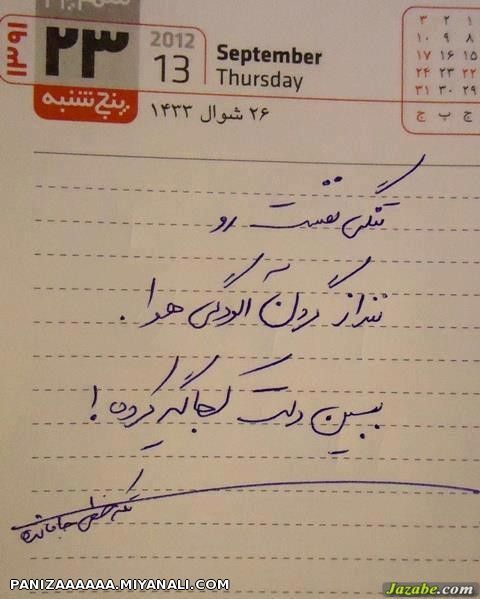 ۱۳۹۱
۲۳
پنج‌شنبه
2012
13
September
Thursday
۲۶ شوال ۱۴۳۳
۳ ۲ ۱
۱۰ ۹ ۸
۱۷ ۱۶ ۱۵
۲۴ ۲۳ ۲۲
۳۱ ۳۰ ۲۹
ج پ چ
تنگی نفست رو
ننداز گردن آلودگی هوا.
ببین دلت کجا گیر کرده!
PANIZAAAAAA.MIYANALI.COM
Jazabe.com